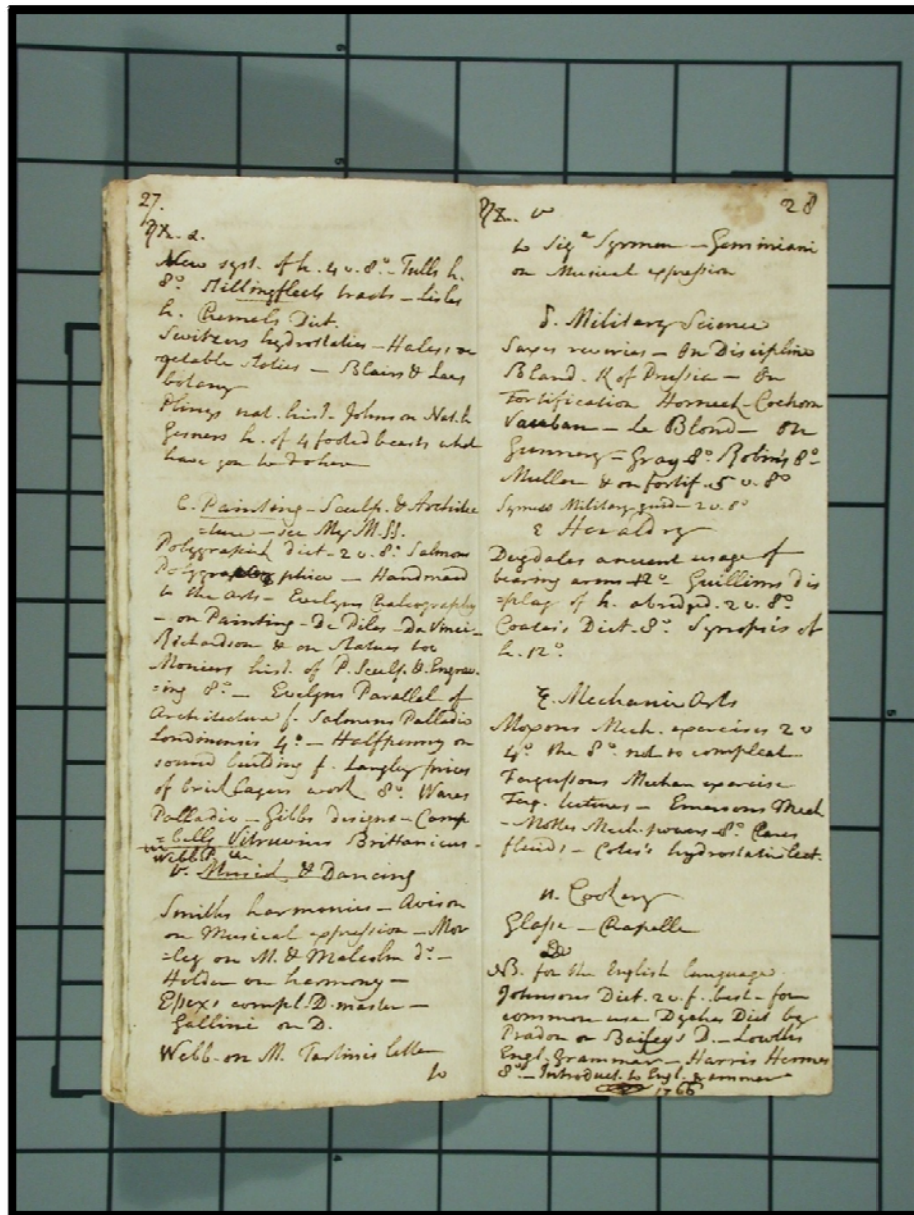 27.
New syst. of h. 4 v. 8.o - Tulls h.
8.o Stillingfleets tracts - Lisles
h. Chomels Dict.
Switzers hydrostatics - Hales's ve
getable statics - Blairs & Lees
botany
Plinys nat. hist. Johnson Nat. h
Gesners h. of 4 footed beasts what
have you be

C. Painting - Sculp. & Architec
=ture - see My M.SS.
Polygraphick dict. 2 v. 8.o Salmons
Polygraphice - Handmaid
to the arts - Evelyns Chalcography
- on Painting - De Piles - Da Vinci -
Richardson & on Statues too
Moniers hist. of P. Sculp. & Engrav-
=ing 8.o - Evelyns Parallel of
Architecture f. Salmons Palladio
Londinensis 4.o - Halfpenny on
sound building f. Langley prices
of bricklayers work 8.o Wares
Palladio - Gibbs designs - Camp
=bells Vitruvius Brittanicus -
Webb
v. Musick & Dancing
Smiths harmonics - Avison
on Musical expression - Mor
=ley on M. & Malcolm d.o -
Holden on harmony -
Essex's compl. D. master -
Gallini on D.
Webb on M. Tartinis letter
to

28
to Sig.a Syrmen - Geminiani
on Musical expression

δ. Military Science
Saxes reveries - On Discipline
Bland. K of Prussia - On
Fortification Horneck - Coehorn
Vauban - Le Blond - on
Gunnery = Gray 8.o Robins 8.o -
Muller & on fortif. 5 v. 8.o
Symes Military guide 2 v. 8.o
ε Heraldry
Dugdales ancient usage of
bearing arms 12.o Guillims dis
=play of h. abridged. 2 v. 8.o
Coates's Dict. 8.o Synopsis of
h. 12.o

ξ. Mechanic Arts
Moxons Mech. exercises 2 v
4.o the 8.o not so compleat
Fergussons Mechan exercise
Ferg. lectures - Emersons Mech
- Mottes Mech. powers 8.o Clares
fluids - Cotes's hydrostatic lect.

η. Cookery
Glasse - Chapelle

NB. for the English language
Johnsons Dict. 2 v. f. best - for
common use Dyches Dict by
Pardon or Baileys D. - Lowths
Engl. Grammar - Harris Hermes
8.o - Introduct. to Engl. grammar
1766